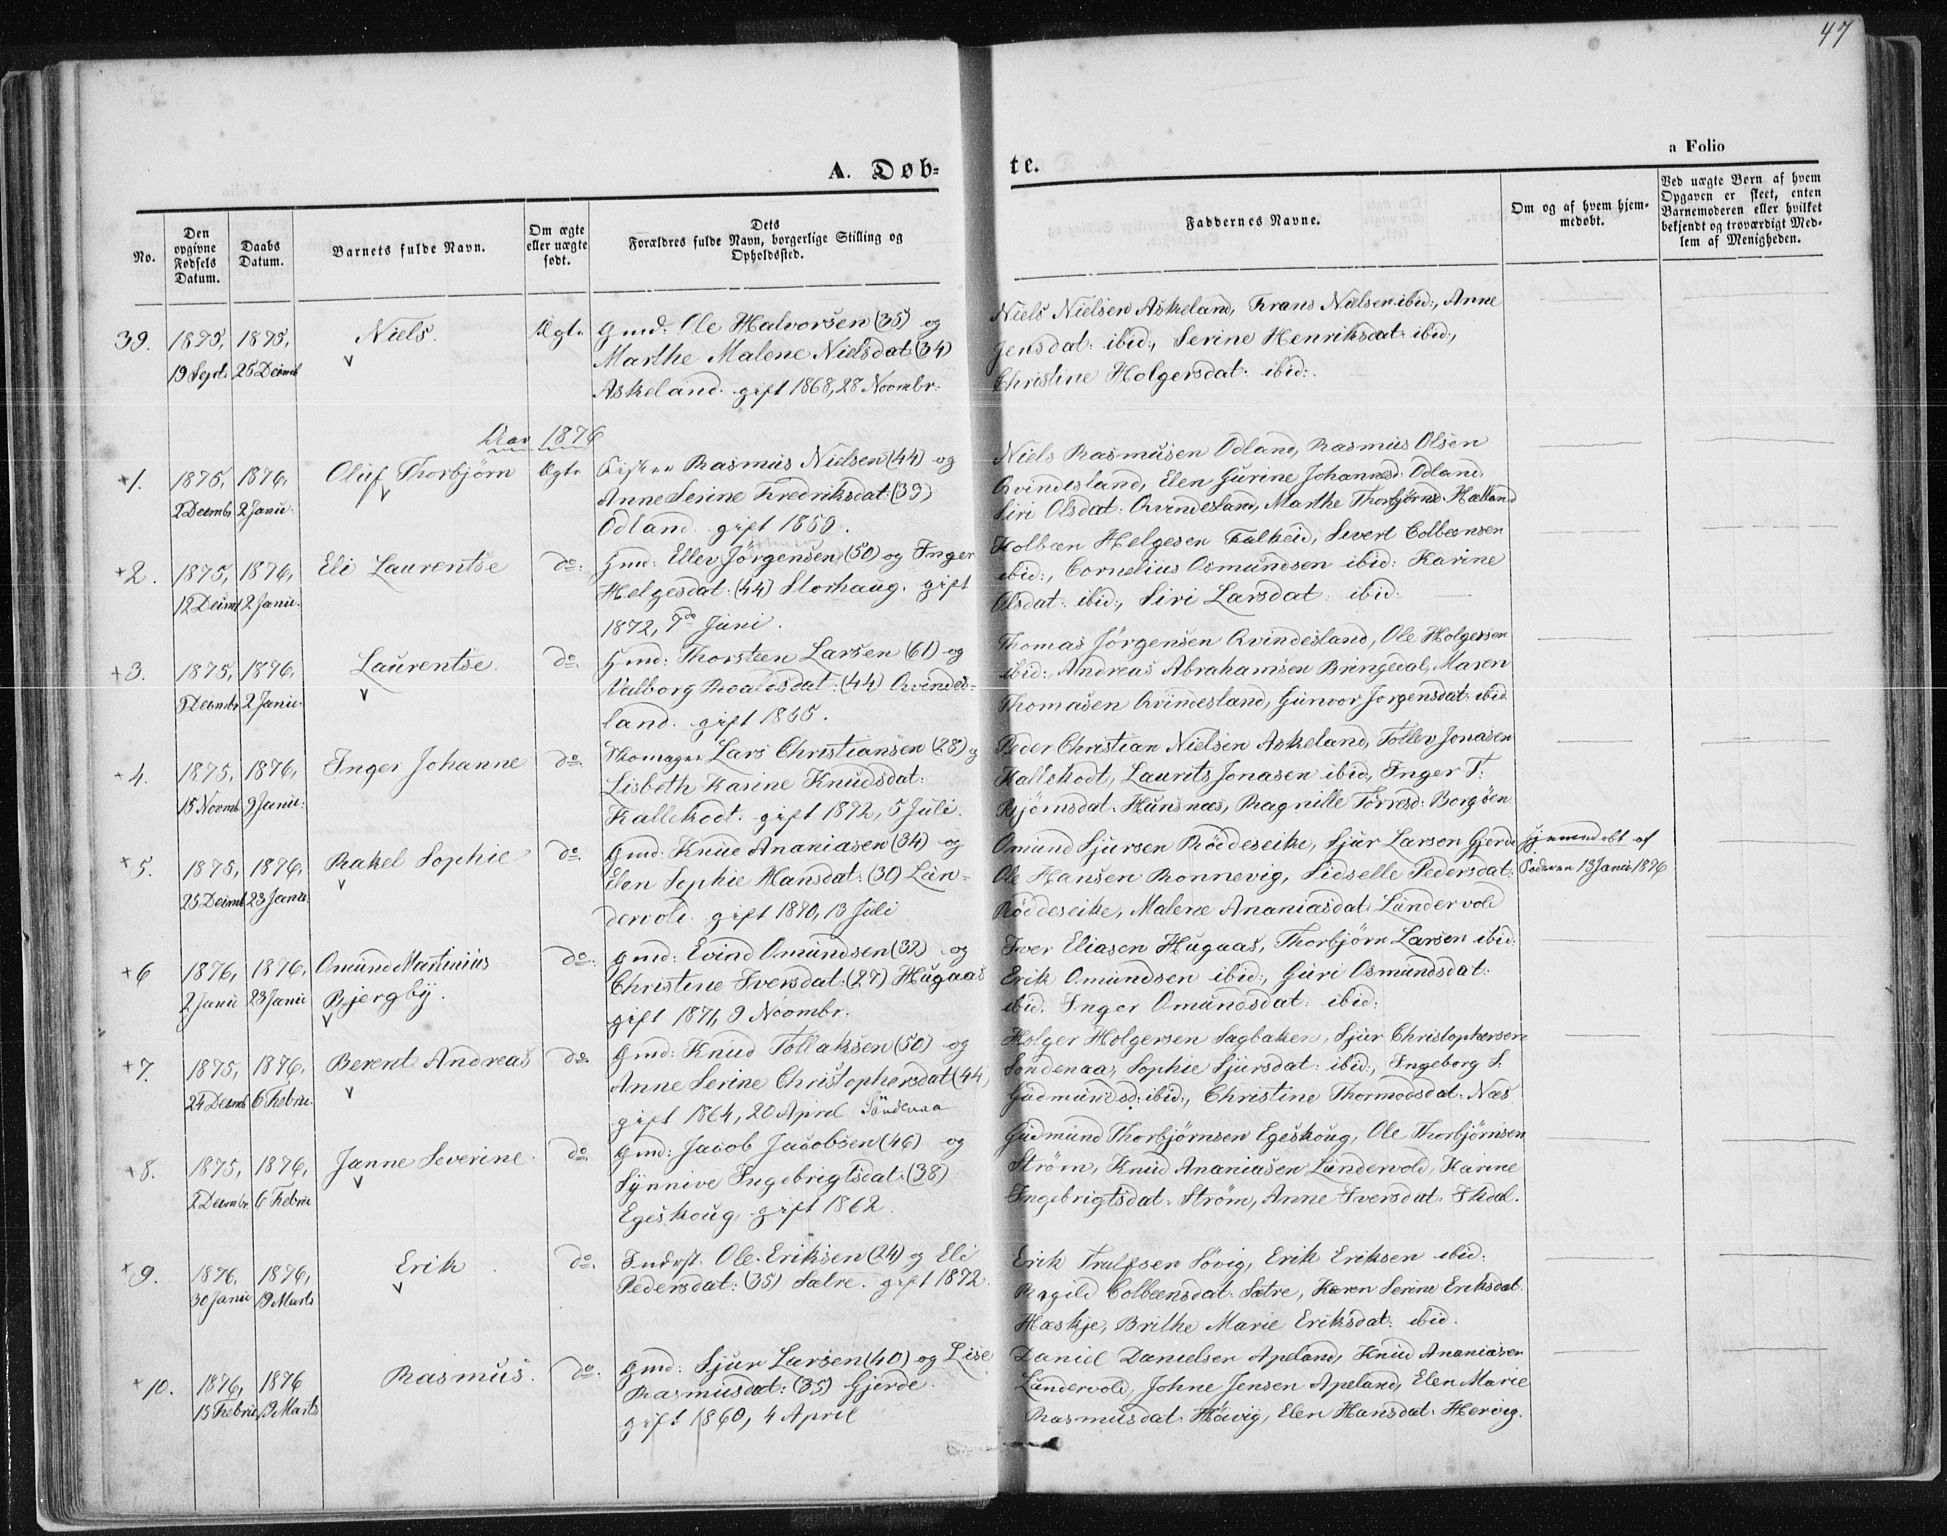 47
a Folio
A. Døb=
te.
No.
Den opgivne Fødsels Datum.
Daabs Datum.
Barnets fulde Navn.
Om ægte eller uægte født.
Dets Forældres fulde Navn, borgerlige Stilling og Opholdssted.
Faddernes Navne.
Om og af hvem hjem-medøbt.
Ved uægte Børn af hvem Opgaven er skeet, enten Barnemoderen eller hvilket bekjendt og troværdigt Med-lem af Menigheden.
39. 1875, 1875, Niels. Ægte Gmd: Ole Halvorsen (35) og
19 Sept. 25 Decmb Marthe Malene Nielsdat. (34)
Askeland. gift 1868, 28 Novmbr.
Niels Nielsen Askeland, Frans Nielsen ibid:, Anne
Jensdat: ibid:, Serine Henriksdat: ibid:,
Christine Holgersdat: ibid:
Aar 1876
+1. 1875, 1876, Oluf Thorbjörn Ægte Rasmus Nielsen (44) og
2 Janu: Anne Serine Fredriksdat: (39)
Odland. gift 1859.
Niels Rasmusen Odland, Rasmus Olsen
Qvindesland, Elen Gurine Johannesd: Odland,
Siri Olsdat: Qvindesland, Marthe Thorbjörnsd.
+2. 1875, 1876, Eli Laurentse do: Gmd: Ellev Jörgensen (50) og Inger
12 Decmb 2 Janu: Helgesdat: (44) Storhaug. gift
1872, 7de Juni.
Kolbæn Helgesen Falheid, Sivert Colbeensen
ibid:, Cornelius Osmundsen ibid: Karine
Olsdat: ibid:, Siri Larsdat: ibid:
+3. 1875, 1876, Laurentse. do. Gmd: Thorsteen Larsen (61) og
2 Janu: Valborg Roaldsdat: (44) Qvindes-
land. gift 1865.
Thomas Jörgensen Qvindesland, Ole Holgersen
ibid:, Andreas Abrahamsen Bringedal, Maren
Thomasen Qvindesland, Gunvor Jorgensdat: ibid
+4. 1875, 1876, Inger Johanne do. Skomager Lars Christiansen (28) og
15 Novmb 9 Janu: Lisbeth Karine Knudsdat:
Kallekodt. gift 1872, 5 Juli.
Peder Christian Nielsen Askeland, Tollev Jonasen
Kallekodt, Laurits Jonasen ibid, Inger T:
Björnsdat: Hunsnæs, Ragnille Torresd: Borgöen
+5. 1875, 1876, Rakel Sophie do. Gmd: Knud Ananiasen (34) og
25 Decmb 23 Janu: Elen Sophie Hansdat: (30) Lün-
dervold. gift 1870, 13 Juli
Omund Sjursen Röddeseike, Sjur Larsen Gjerde
Ole Hansen Ronnevig, Sidselle Pedersdat:
Röddeseike, Malene Ananiasdat: Lündervold
Hjemmedøbt af
Faderen 13 Janu: 1876
+6 1876, 1876, Omund Martinius do. Gmd: Evind Omundsen (32) og
2 Janu 23 Janu Bjergby. Christine Iversdat: (27) Hugaas
gift 1871, 9 Novmbr.
Iver Eliasen Hugaas, Thorbjörn Larsen ibid:
Erik Omundsen ibid:, Guri Osmundsdat:
ibid. Inger Omundsdat: ibid:
+7. 1875, 1876, Berent Andreas do. Gmd: Knud Tollaksen (50) og
6 Febru. Anne Serine Christophersdat (44)
gift 1864, 20 April Söndenaa
Holger Holgersen Sagbaken, Sjur Christophersen
Söndenaa, Sophie Sjursdat: ibid:, Ingeborg S:
Gudmundsd: ibid:, Christine Thormodsdat: Næs
+8. 1875, 1876, Janne Severine do. Gmd: Jacob Jacobsen (46) og
2 Decmbr 6 Febru Synnive Ingebrigtsdat: (38)
Egeskoug, gift 1862.
Gudmund Thorbjørnsen Egeskoug, Ole Thorbjørnsen
Strøm, Knud Ananiasen Lündervold, Karine
Ingebrigtsdat: Strøm, Anne Iversdat:
+9. 1876, 1876, Erik do. Indrst. Ole Eriksen (24) og Eli
30 Janu 19 Marts Pedersdat: (35) Sætre. gift 1872.
Erik Søvig, Erik Eriksen ibid:
Ragild Colbænsdat: Sætre, Karen Serine Eriksdat:
Hæskje, Brithe Marie Eriksdat: ibid.
+10. 1876, 1876 Rasmus. do. Gmd: Sjur Larsen (40) og Lise
15 Febru, 19 Marts Rasmusdat: (35) Gjerde.
gift 1860, 4 April
Daniel Danielsen Apeland, Knud Ananiasen
Lündervold, Johne Jensen Apeland, Elen Marie
Rasmusdat: Hövig, Elen Hansdat: